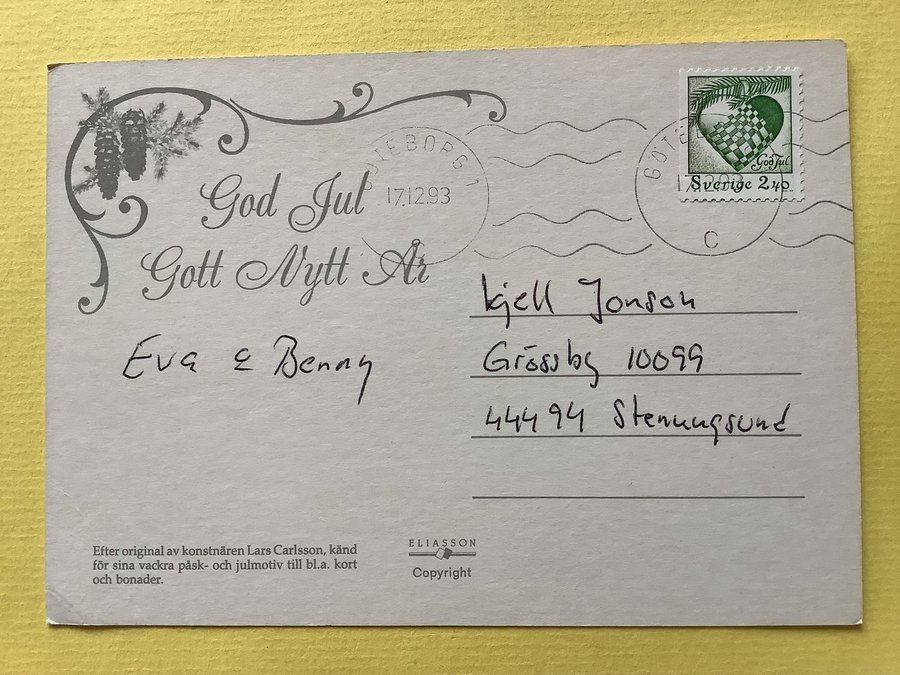 GÖTEBORG 1
17.12.93
GÖTEB
17.12.93
C
God Jul
Sverige 2 40
God Jul
Gott Nytt År
Eva & Benny
Kjell Jonson
Grössby 10099
444 94 Stenungsund
Efter original av konstnären Lars Carlsson, känd
för sina vackra påsk- och julmotiv till bl.a. kort
och bonader.
ELIASSON
Copyright